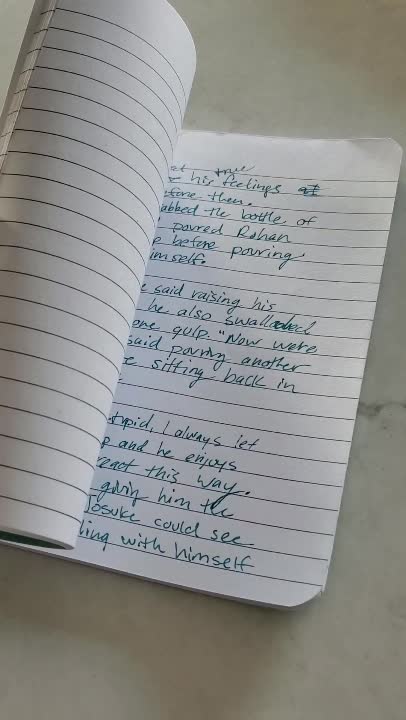 at true
e his feelings at
efore then.
abbed the bottle of
poured Rohan
e before pouring
imself.
e said raising his
he also swallowed
one gulp. "Now were
said pouring another
e sitting back in
tupid, I always let
p and he enjoys
react this way.
giving him the
Josuke could see
ling with himself